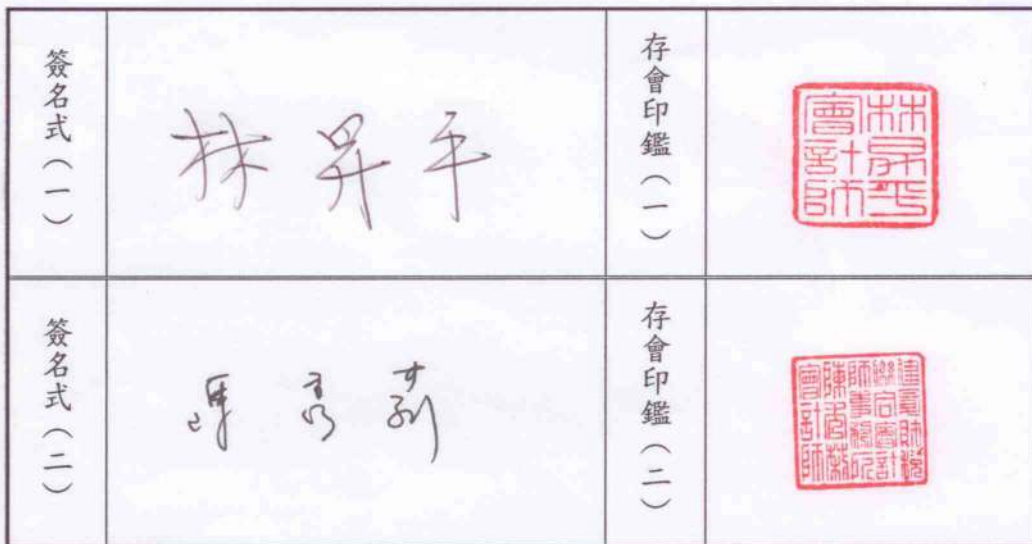 簽名式（一）
林昇平
存會印鑑（一）
林昇平
會計師
簽名式（二）
存會印鑑（二）
會計師